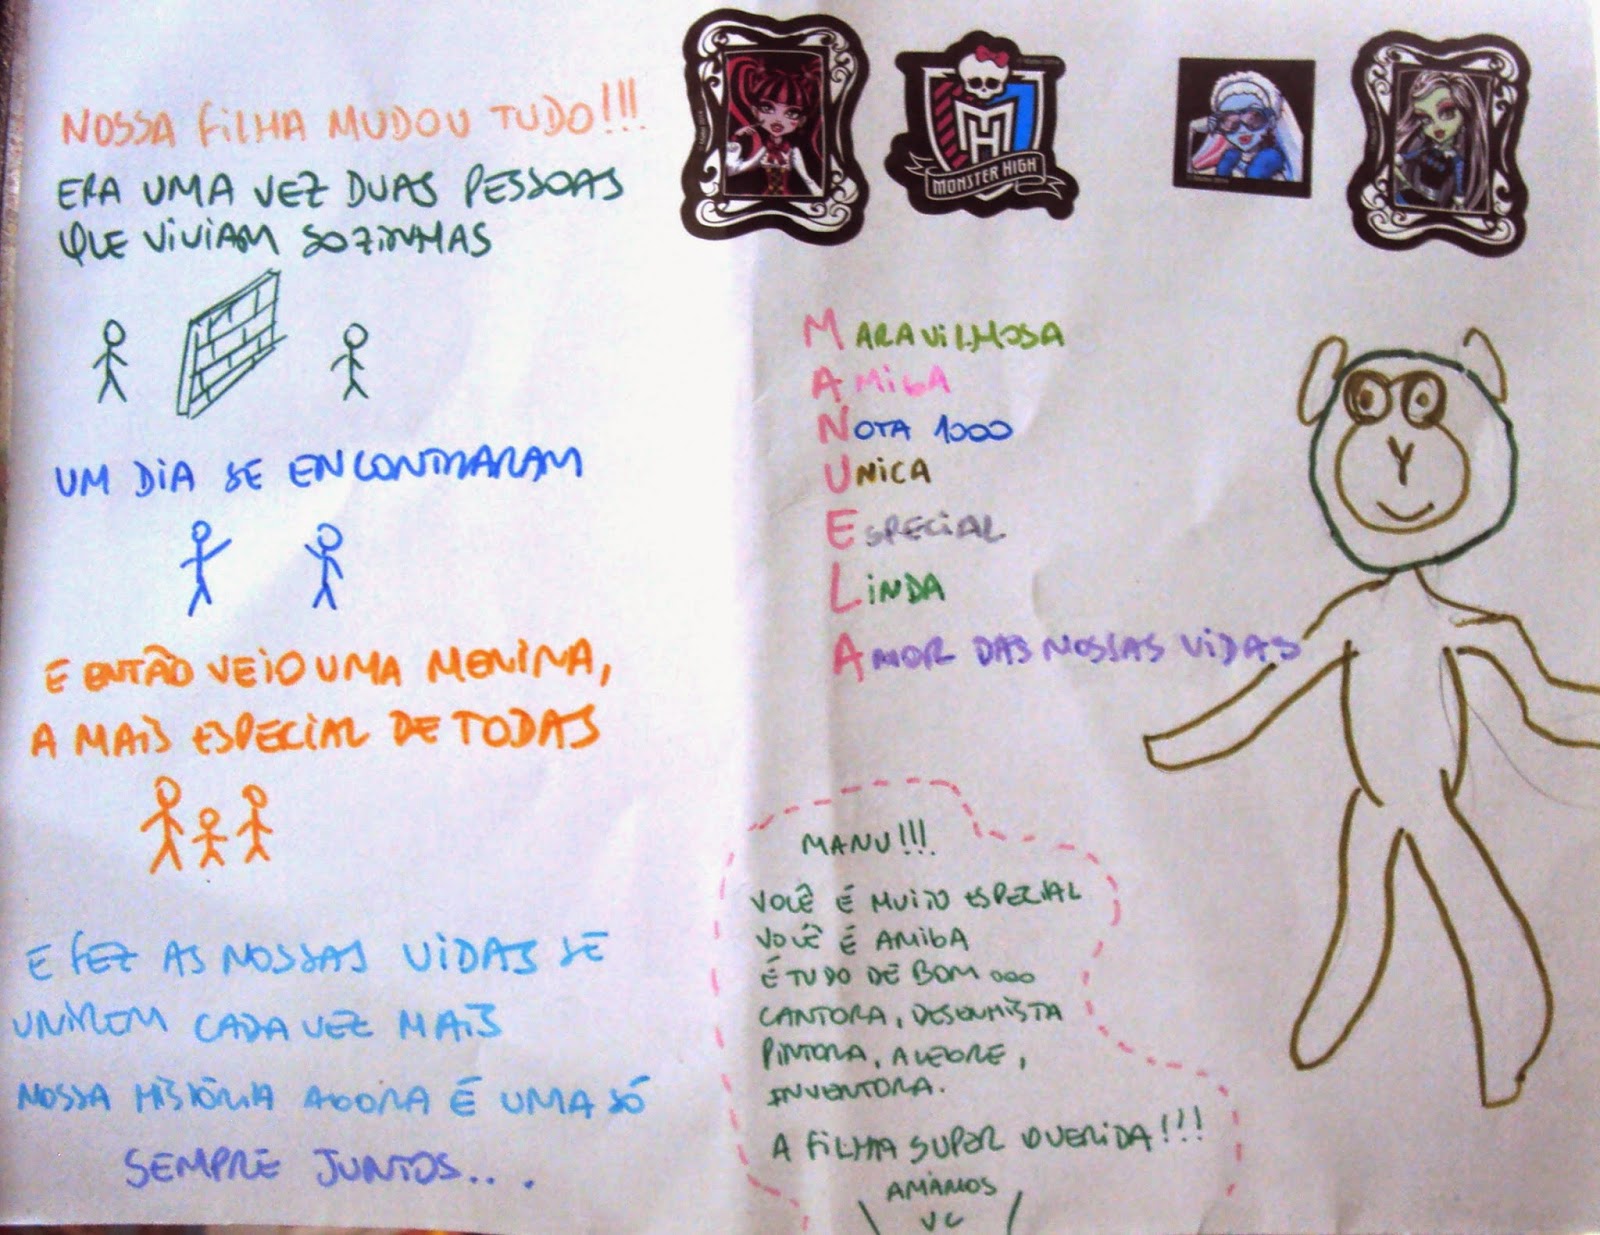 NOSSA FILHA MUDOU TUDO!!!
ERA UMA VEZ DUAS PESSOAS
QUE VIVIAM SOZINHAS
UM DIA SE ENCONTRARAM
E ENTÃO VEIO UMA MENINA,
A MAIS ESPECIAL DE TODAS
E FEZ AS NOSSAS VIDAS SE
UNIREM CADA VEZ MAIS
NOSSA HISTÓRIA AGORA É UMA SÓ
SEMPRE JUNTOS...
MH
MONSTER HIGH
MARAVILHOSA
AMIGA
NOTA 1000
UNICA
ESPECIAL
LINDA
AMOR DAS NOSSAS VIDAS
MANU!!!
VOCÊ É MUITO ESPECIAL
VOCÊ É AMIGA
É TUDO DE BOM...
CANTORA, DESENHISTA
PINTORA, ALEGRE,
INVENTORA.
A FILHA SUPER QUERIDA!!!
AMAMOS
VC